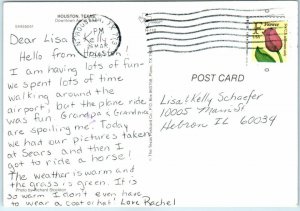 HOUSTON, TEXAS
Dear Lisa,
Hello from Houston!
I am having lots of fun-
we spent lots of time
walking around the
airport, but the plane ride
was fun. Grandpa & Grandma
are spoiling me. Today
we had our pictures taken
at Sears and then I
got to ride a horse!
The weather is warm and
the grass is green. It is
so warm I don't even have
to wear a coat or hat! Love, Rachel
PM
POST CARD
Lisa & Kelly Schaefer
10005 Main St
Hebron IL 60034